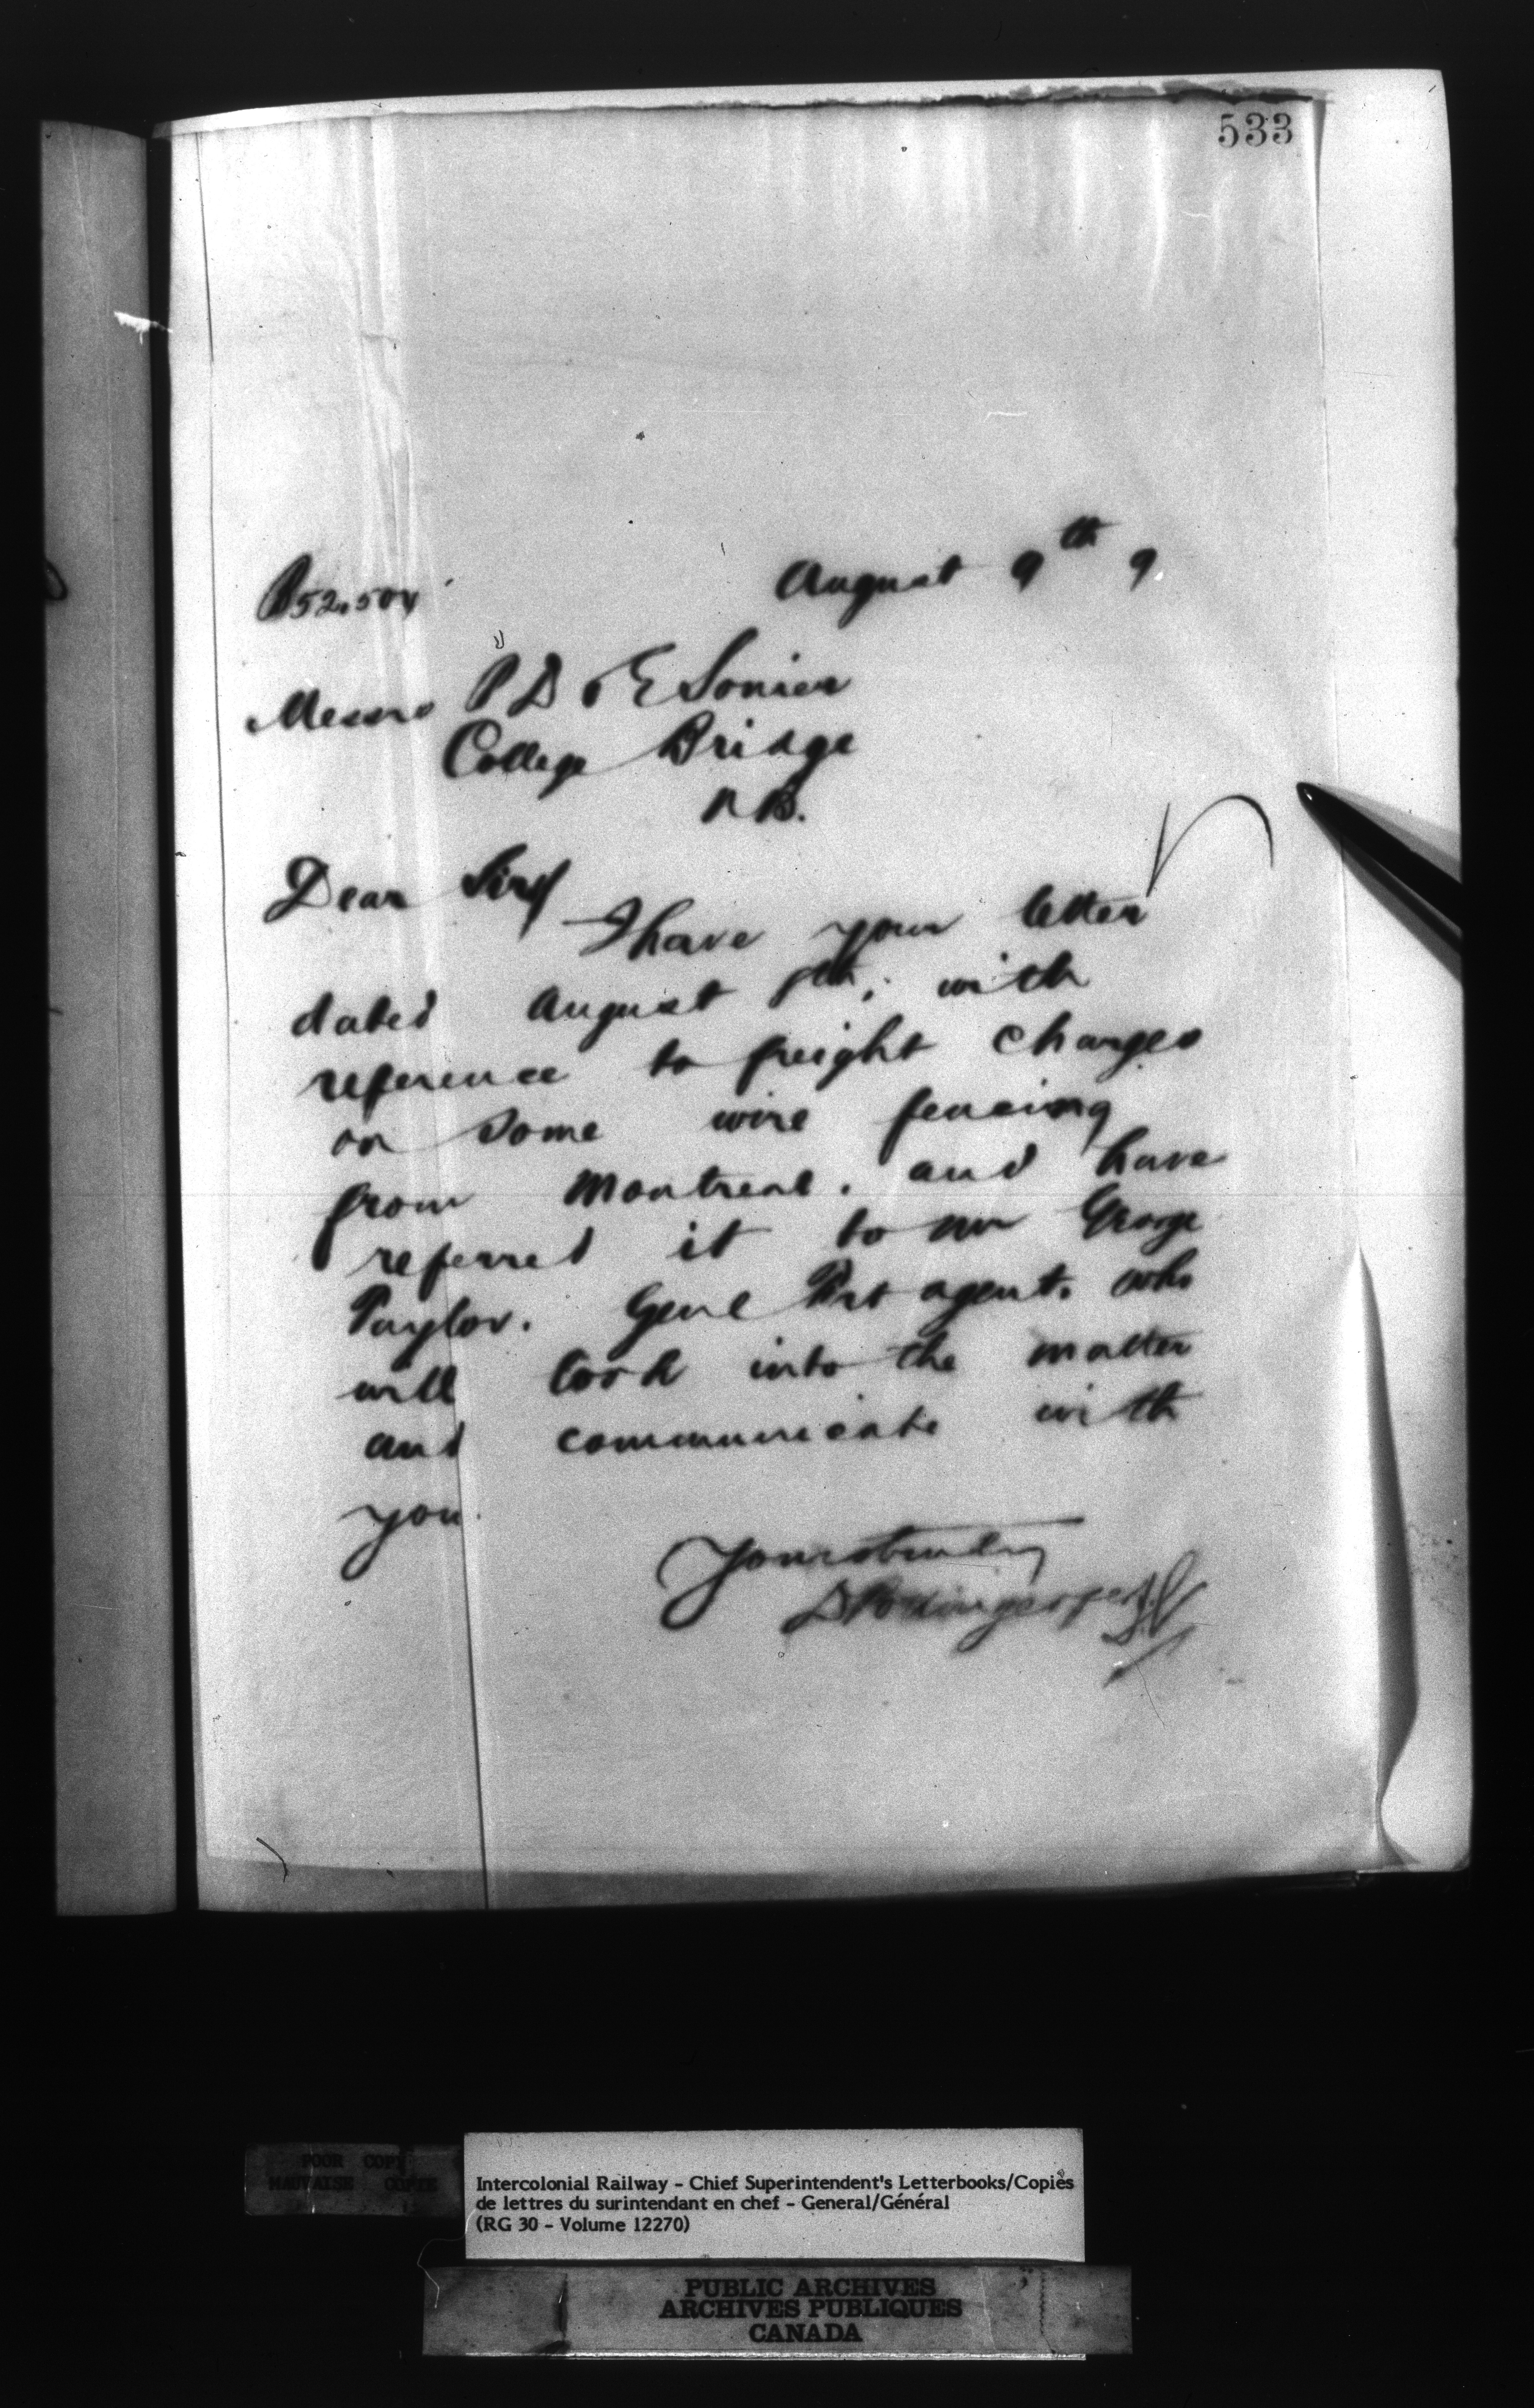 533
August 9th 9
Messrs P D & E Sonier
College Bridge
N B.
Dear Sirs
I have your letter
dated August 8th, with
reference to freight charges
on some wire fencing
from Montreal. and have
referred it to Mr George
Taylor. Genl Frt agent. who
will look into the matter
and communicate with
you.
Yours truly
D Pottinger per
POOR COPY
MAUVAISE COPIE
Intercolonial Railway - Chief Superintendent's Letterbooks/Copies
de lettres du surintendant en chef - General/Général
(RG 30 - Volume 12270)
PUBLIC ARCHIVES
ARCHIVES PUBLIQUES
CANADA